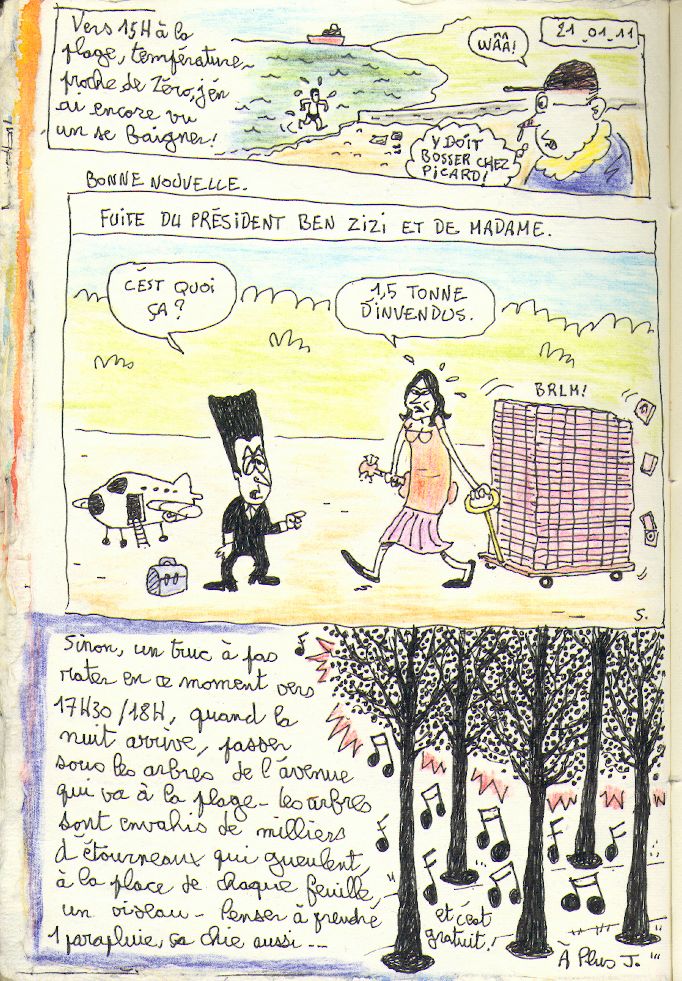 Vers 15H à la
plage, température
proche de Zéro, j'en
ai encore vu
un se Baigner!
WÂÂ!
21_01_11
Y DOIT
BOSSER CHEZ
PICARD!
BONNE NOUVELLE.
FUITE DU PRÉSIDENT BEN ZIZI ET DE MADAME.
C'EST QUOI
ÇA?
1,5 TONNE
D'INVENDUS.
BRLM!
S.
Sinon, un truc à pas
rater en ce moment vers
17H30/18H, quand la
nuit arrive, passer
sous les arbres de l'avenue
qui va à la plage - les arbres
sont envahis de milliers
d'étourneaux qui gueulent,
à la place de chaque feuille,
un oiseau - Penser à prendre
1 parapluie, ça chie aussi ---
et c'est
gratuit!
À Plus J.